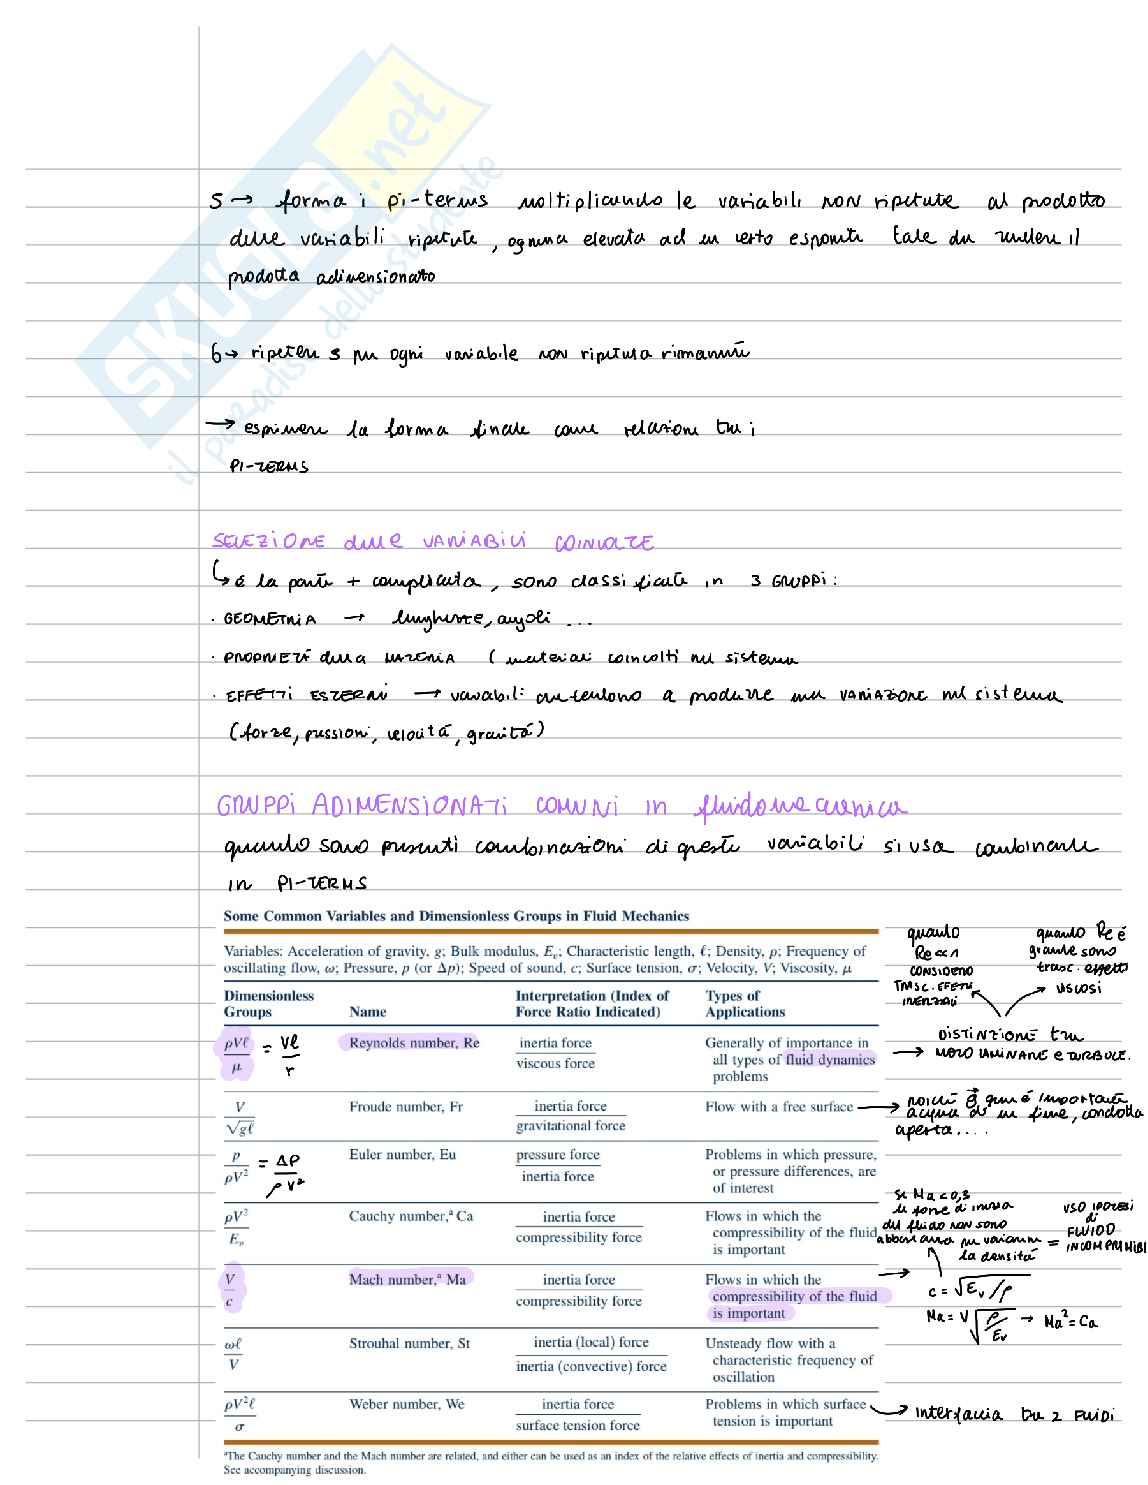 SKUOLA.net
il paradiso dello studente
5 → forma i pi-terms moltiplicando le variabili non ripetute al prodotto
delle variabili ripetute, ognuna elevata ad un certo esponente tale da rendere il
prodotto adimensionato
6 → ripetere 5 per ogni variabile non ripetuta rimanente
→ esprimere la forma finale come relazione tra i
PI-TERMS
SELEZIONE delle VARIABILI COINVOLTE
↳ è la parte + complicata, sono classificate in 3 GRUPPI:
· GEOMETRIA → lunghezze, angoli ...
· PROPRIETÀ della MATERIA ( materiali coinvolti nel sistema
· EFFETTI ESTERNI → variabili che tendono a produrre una VARIAZIONE nel sistema
(forze, pressioni, velocità, gravità)
GRUPPI ADIMENSIONATI COMUNI in fluidomeccanica
quando sono presenti combinazioni di queste variabili si usa combinarle
in PI-TERMS
Some Common Variables and Dimensionless Groups in Fluid Mechanics
Variables: Acceleration of gravity, g; Bulk modulus, Eᵥ; Characteristic length, ℓ; Density, ρ; Frequency of
oscillating flow, ω; Pressure, p (or Δp); Speed of sound, c; Surface tension, σ; Velocity, V; Viscosity, μ
quando Re<<1 CONSIDERO TRASC. EFFETTI INERZIALI
quando Re è grande sono trasc. effetti viscosi
Dimensionless Groups Name Interpretation (Index of Force Ratio Indicated) Types of Applications
ρVℓ/μ = Vℓ/ν Reynolds number, Re inertia force/viscous force Generally of importance in all types of fluid dynamics problems
→ DISTINZIONE tra MOTO LAMINARE e TURBOLE.
V/√gℓ Froude number, Fr inertia force/gravitational force Flow with a free surface
→ poiché g qui è importante acqua di un fiume, condotta aperta....
p/ρV² = Δp/ρV² Euler number, Eu pressure force/inertia force Problems in which pressure, or pressure differences, are of interest
ρV²/Eᵥ Cauchy number,ᵃ Ca inertia force/compressibility force Flows in which the compressibility of the fluid is important
se Ma<0,3 le forze di inerzia del fluido non sono abbastanza per variarne la densità = USO IPOTESI di FLUIDO INCOMPRIMIBI
V/c Mach number,ᵃ Ma inertia force/compressibility force Flows in which the compressibility of the fluid is important
→ c = √Eᵥ/ρ
Ma = V √ρ/Eᵥ → Ma² = Ca
ωℓ/V Strouhal number, St inertia (local) force/inertia (convective) force Unsteady flow with a characteristic frequency of oscillation
ρV²ℓ/σ Weber number, We inertia force/surface tension force Problems in which surface tension is important
→ interfaccia tra 2 FLUIDI
ᵃThe Cauchy number and the Mach number are related, and either can be used as an index of the relative effects of inertia and compressibility.
See accompanying discussion.